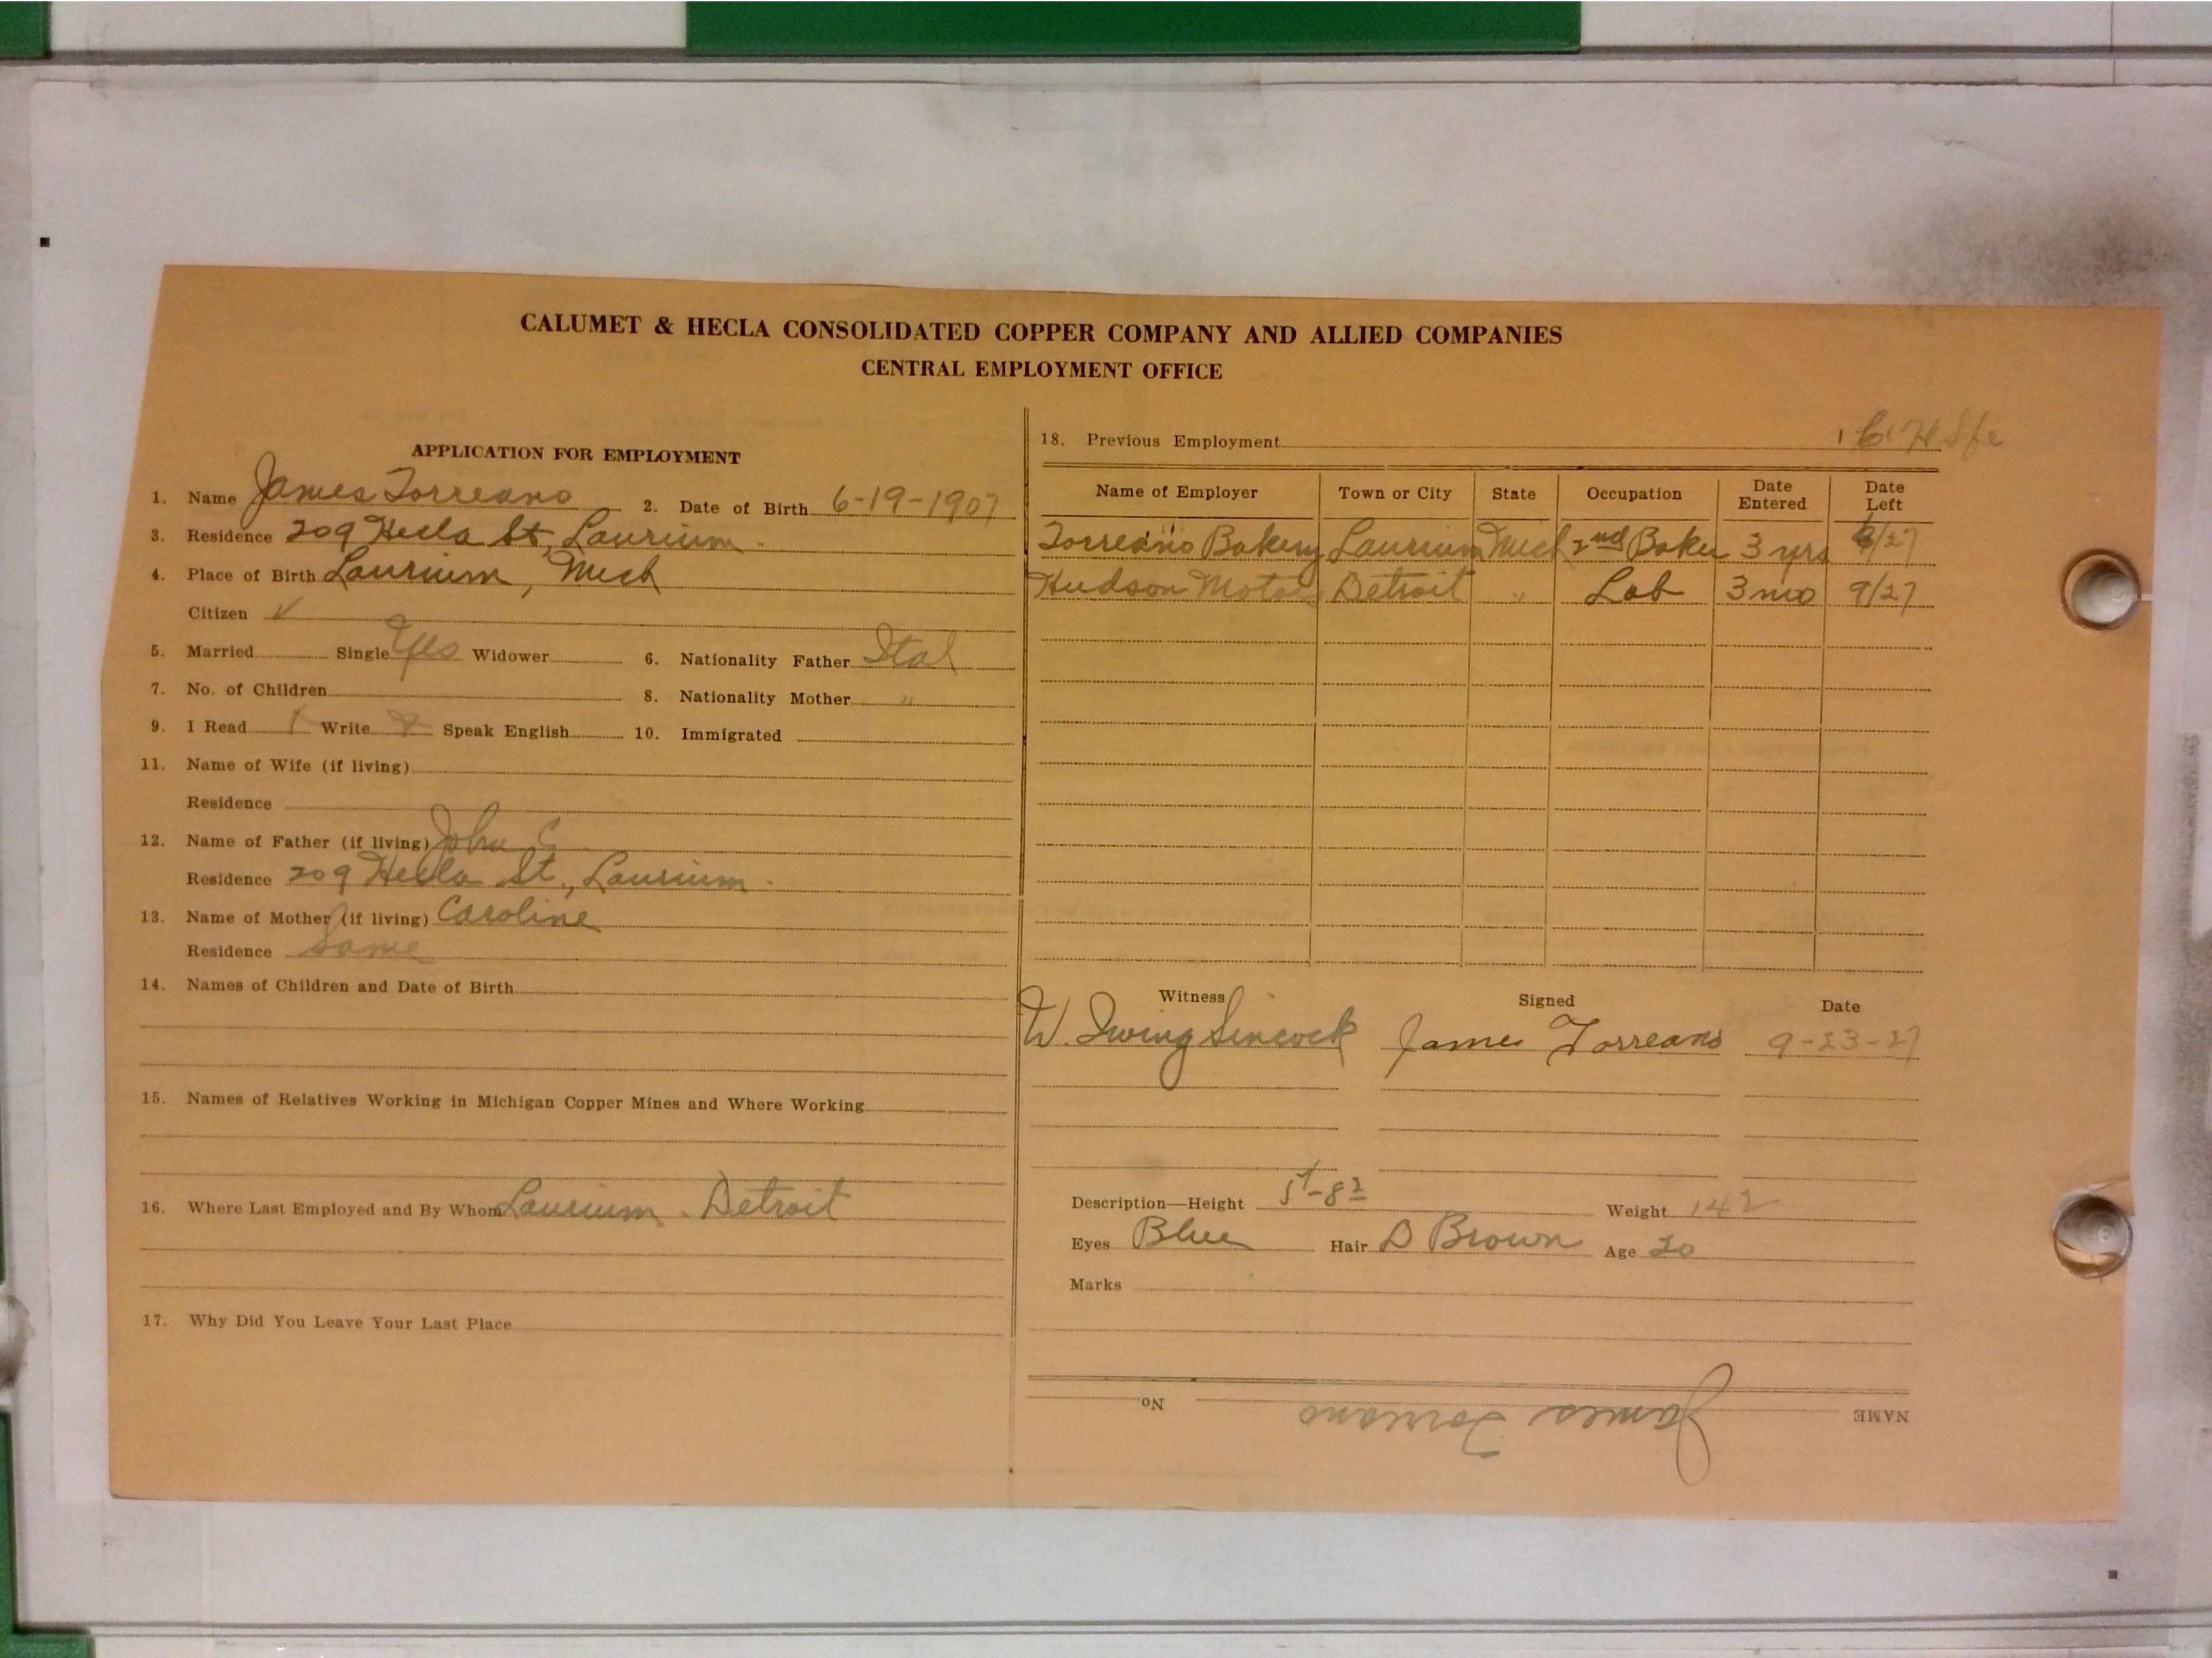 CALUMET & HECLA CONSOLIDATED COPPER COMPANY AND ALLIED COMPANIES
CENTRAL EMPLOYMENT OFFICE
APPLICATION FOR EMPLOYMENT
1. Name James Torreano 2. Date of Birth 6-19-1907
3. Residence 209 Hecla St, Laurium.
4. Place of Birth Laurium, Mich
Citizen ✓
5. Married Single Yes Widower 6. Nationality Father Ital
7. No. of Children 8. Nationality Mother "
9. I Read Write Speak English 10. Immigrated
11. Name of Wife (if living)
Residence
12. Name of Father (if living) John C
Residence 209 Hecla St., Laurium.
13. Name of Mother (if living) Caroline
Residence Same
14. Names of Children and Date of Birth
15. Names of Relatives Working in Michigan Copper Mines and Where Working
16. Where Last Employed and By Whom Laurium. Detroit
17. Why Did You Leave Your Last Place
18. Previous Employment
Name of Employer Town or City State Occupation Date Entered Date Left
Torreano Bakery Laurium Mich 2nd Baker 3 yrs 6/27
Hudson Motor Detroit " Lab 3 mo 9/27
Witness Signed Date
W. Irving Sincock James Torreano 9-23-27
Description—Height 5'-8½ Weight 142
Eyes Blue Hair D Brown Age 20
Marks
NAME James Torreano No.